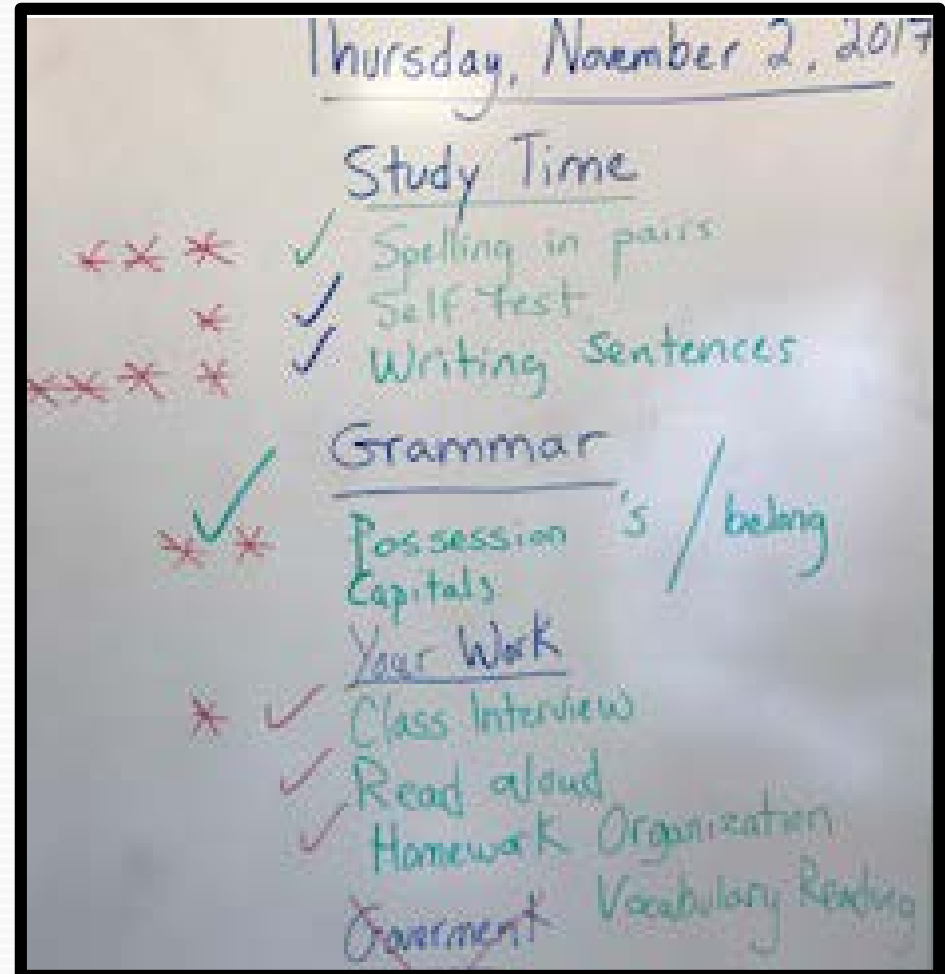 Thursday, November 2, 2017
Study Time
✓ Spelling in pairs
✓ Self test
✓ Writing Sentences
Grammar
✓ Possession 's / belong
Capitals
Your Work
✓ Class Interview
✓ Read aloud
✓ Homework Organization
Vocabulary Reading
Goverment